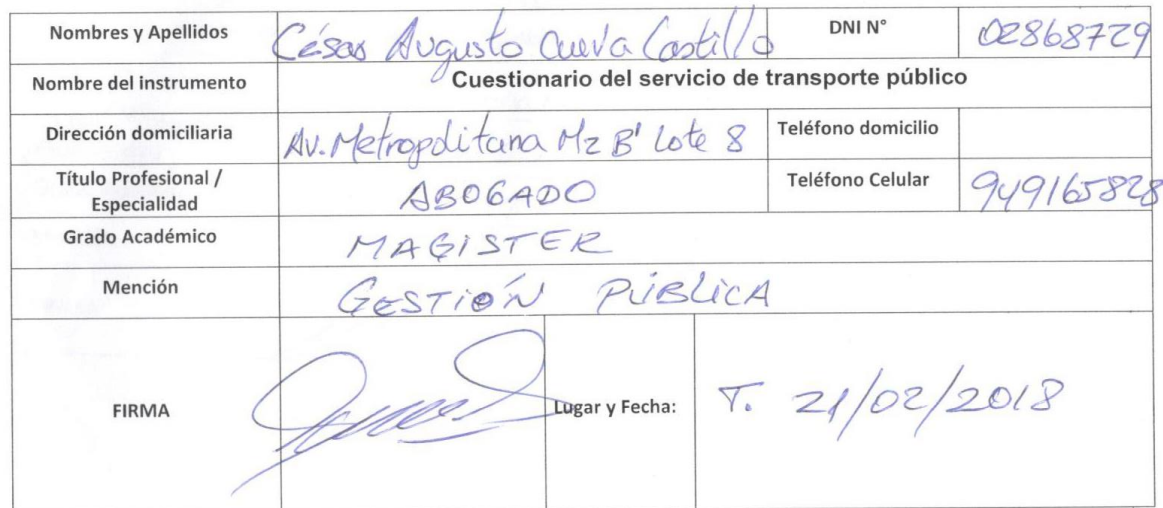 Nombres y Apellidos César Augusto Cueva Castillo DNI N° 02868729
Nombre del instrumento Cuestionario del servicio de transporte público
Dirección domiciliaria Av. Metropolitana Mz B' Lote 8 Teléfono domicilio
Título Profesional / Especialidad ABOGADO Teléfono Celular 949165828
Grado Académico MAGISTER
Mención GESTIÓN PÚBLICA
FIRMA Lugar y Fecha: T. 21/02/2018